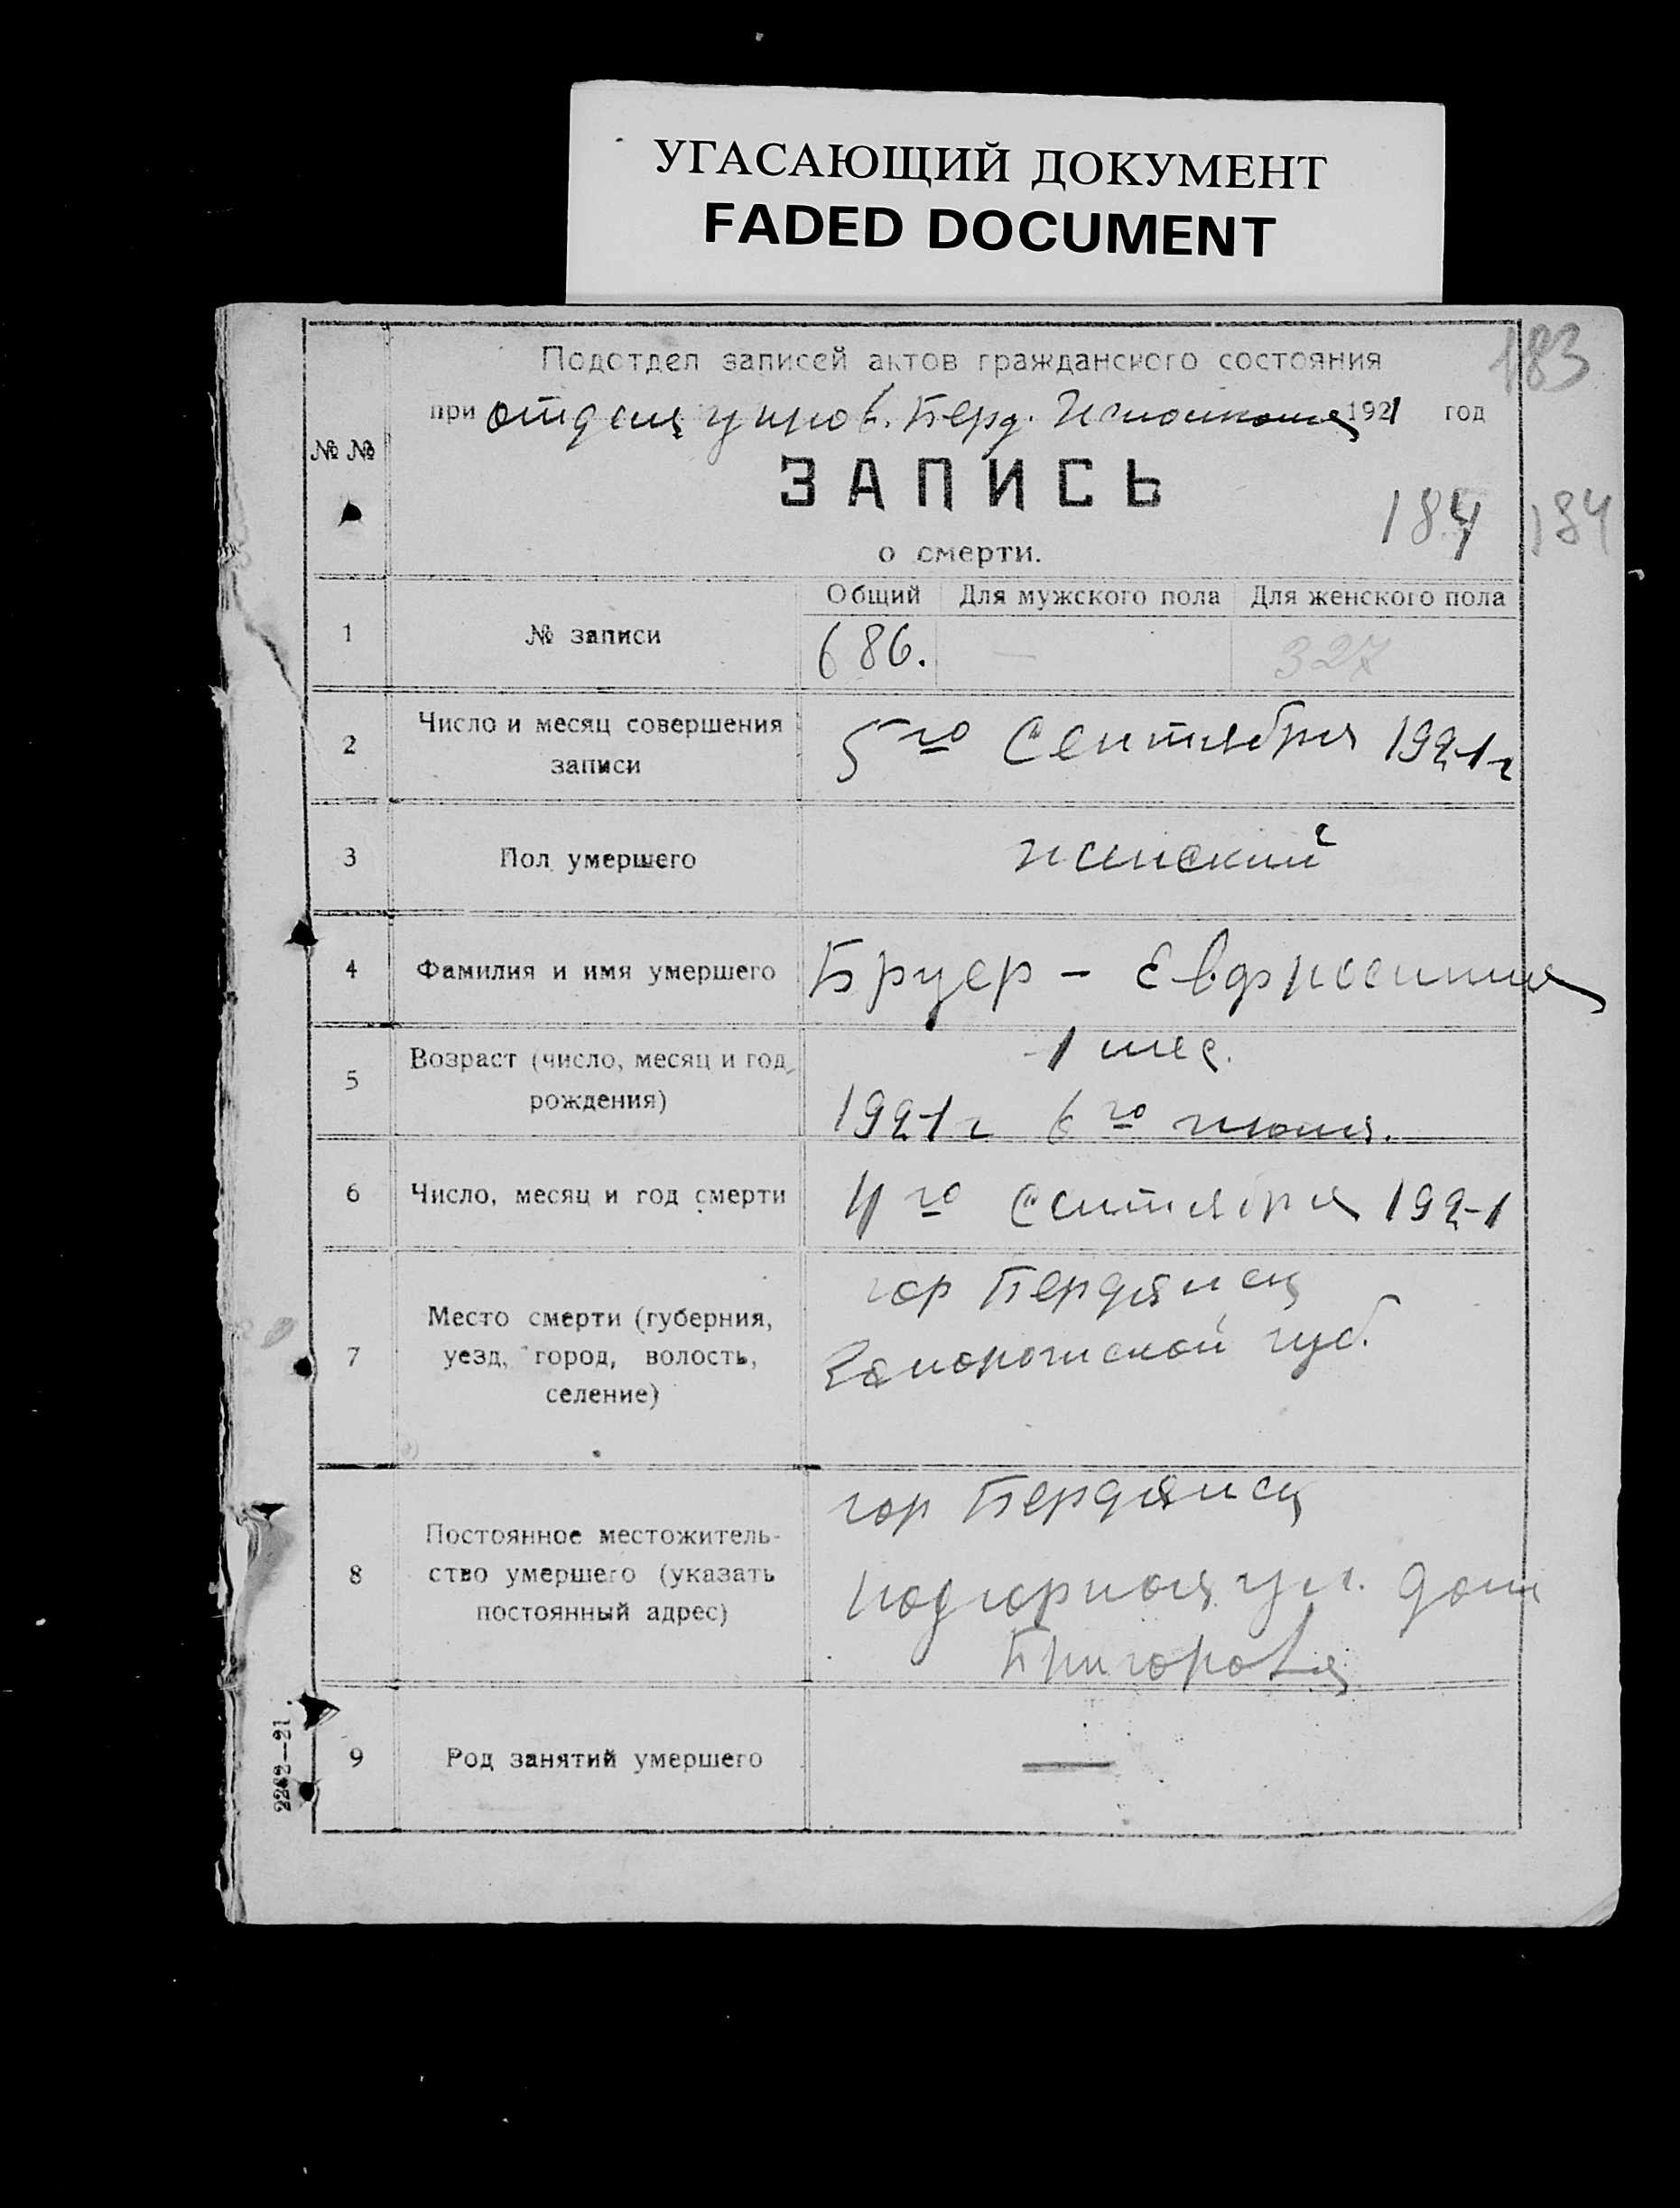 УГАСАЮЩИЙ ДОКУМЕНТ
FADED DOCUMENT
183
Подотдел записей актов гражданского состояния
при отделе управ. Берд. Исполкома 1921 год
№ №
ЗАПИСЬ
184 184
о смерти.
Общий Для мужского пола Для женского пола
1 № записи 686. — 327
2 Число и месяц совершения
записи
5го Сентября 1921 г
3 Пол умершего женский
4 Фамилия и имя умершего Бруер - Евфросиния
5 Возраст (число, месяц и год
рождения)
1 мес.
1921 г 6го
6 Число, месяц и год смерти 4го Сентября 1921
7 Место смерти (губерния,
уезд, город, волость,
селение)
гор Бердянск
Запорожской губ.
8 Постоянное местожитель-
ство умершего (указать
постоянный адрес)
гор Бердянск
Подгорная ул. дом
9 Род занятий умершего —
2262—21